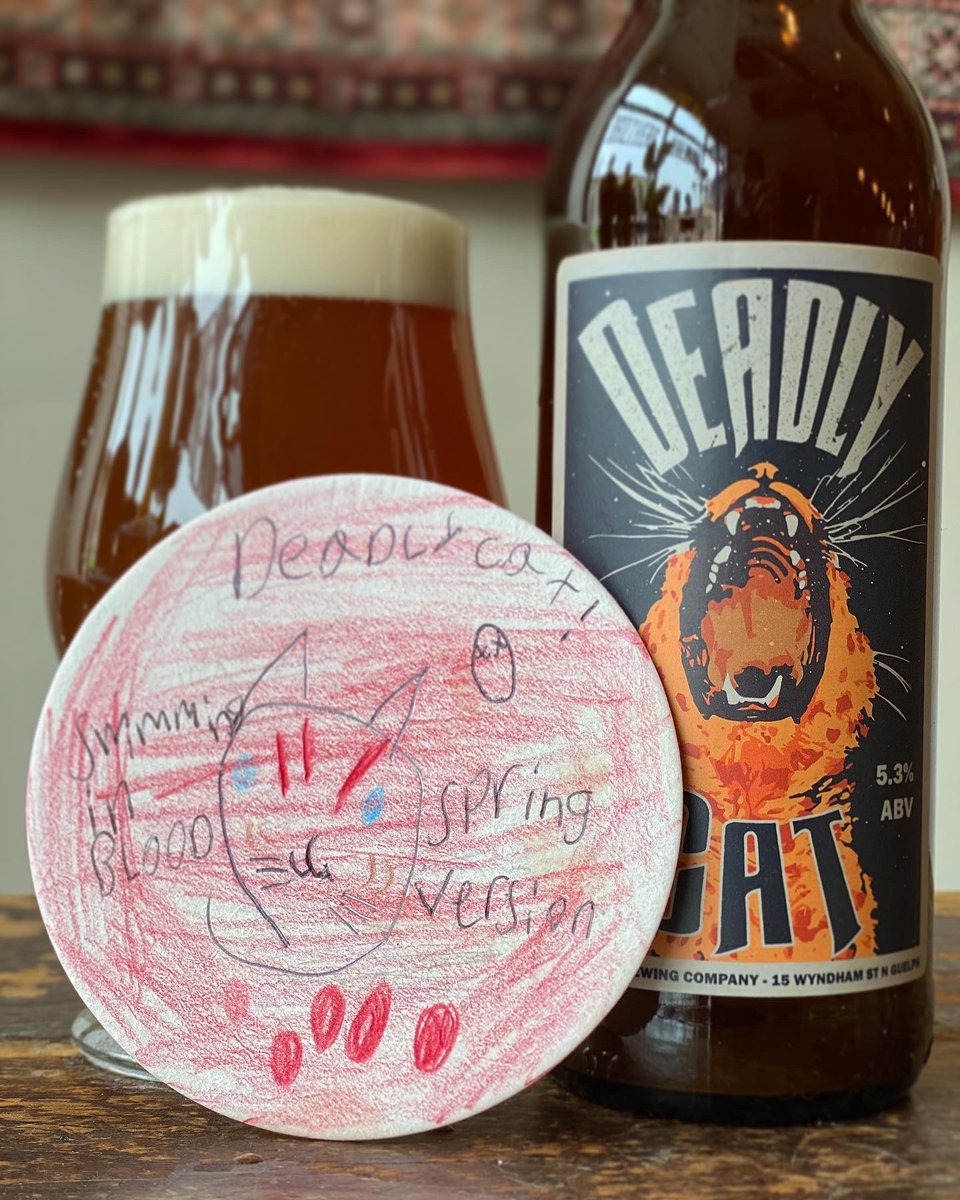 DEADLY
CAT
5.3%
ABV
EWING COMPANY - 15 WYNDHAM ST N GUELPH
DeaDLY cat!
in
BLOOD
spring
version